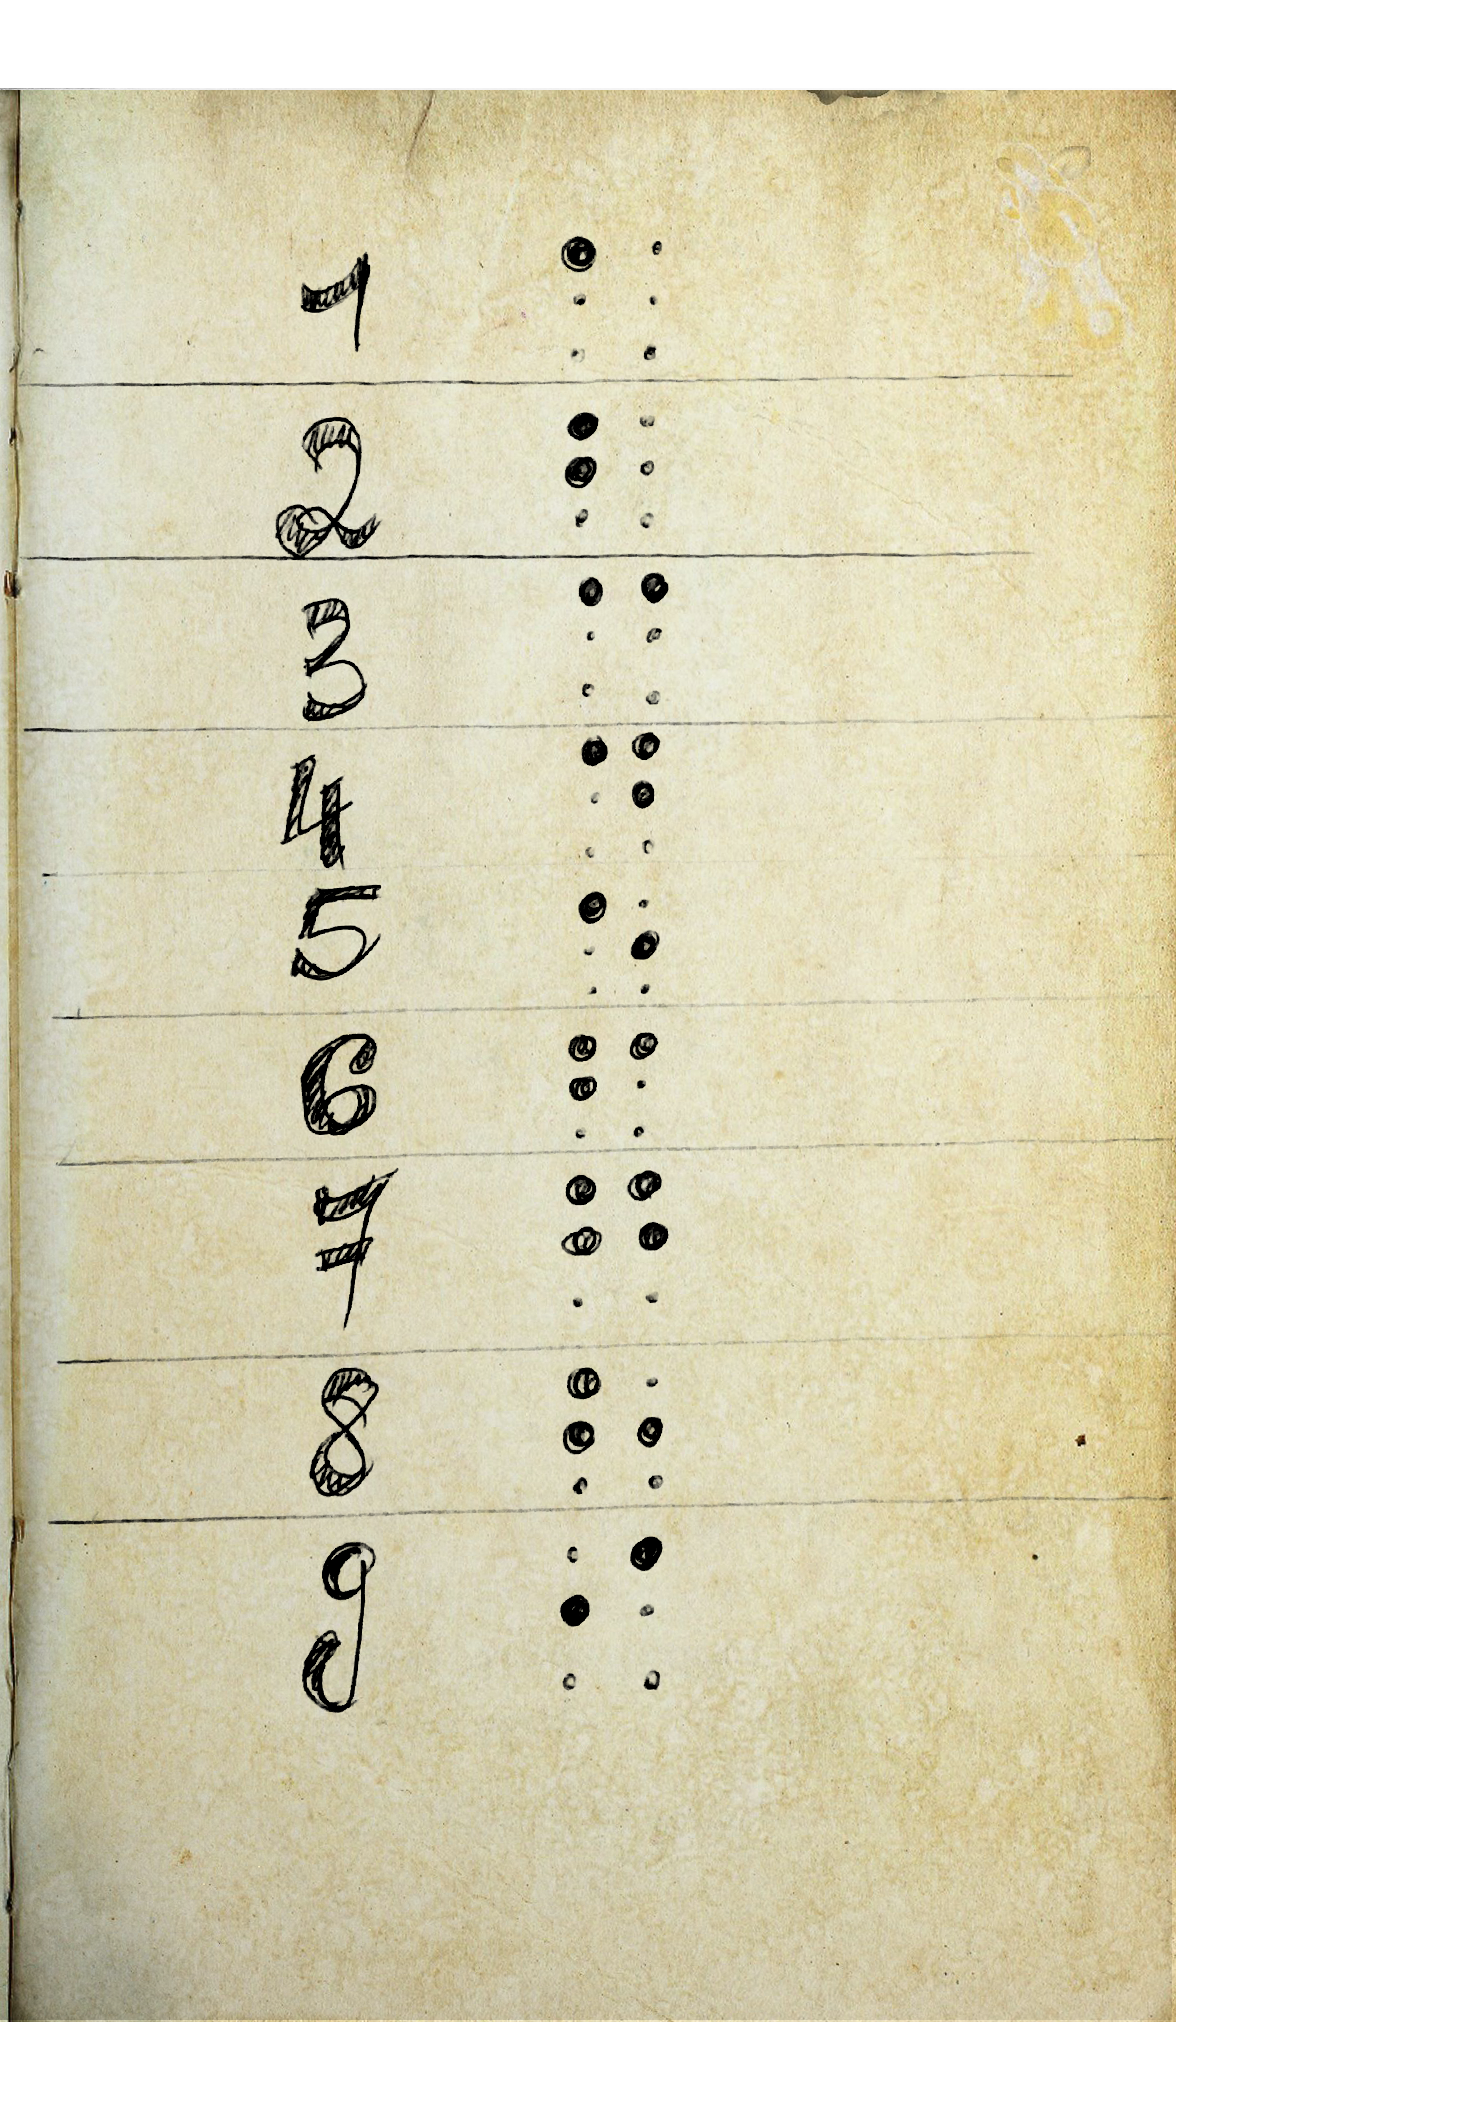 1 ⠁
2 ⠃
3 ⠉
4 ⠙
5 ⠑
6 ⠋
7 ⠛
8 ⠓
9 ⠊